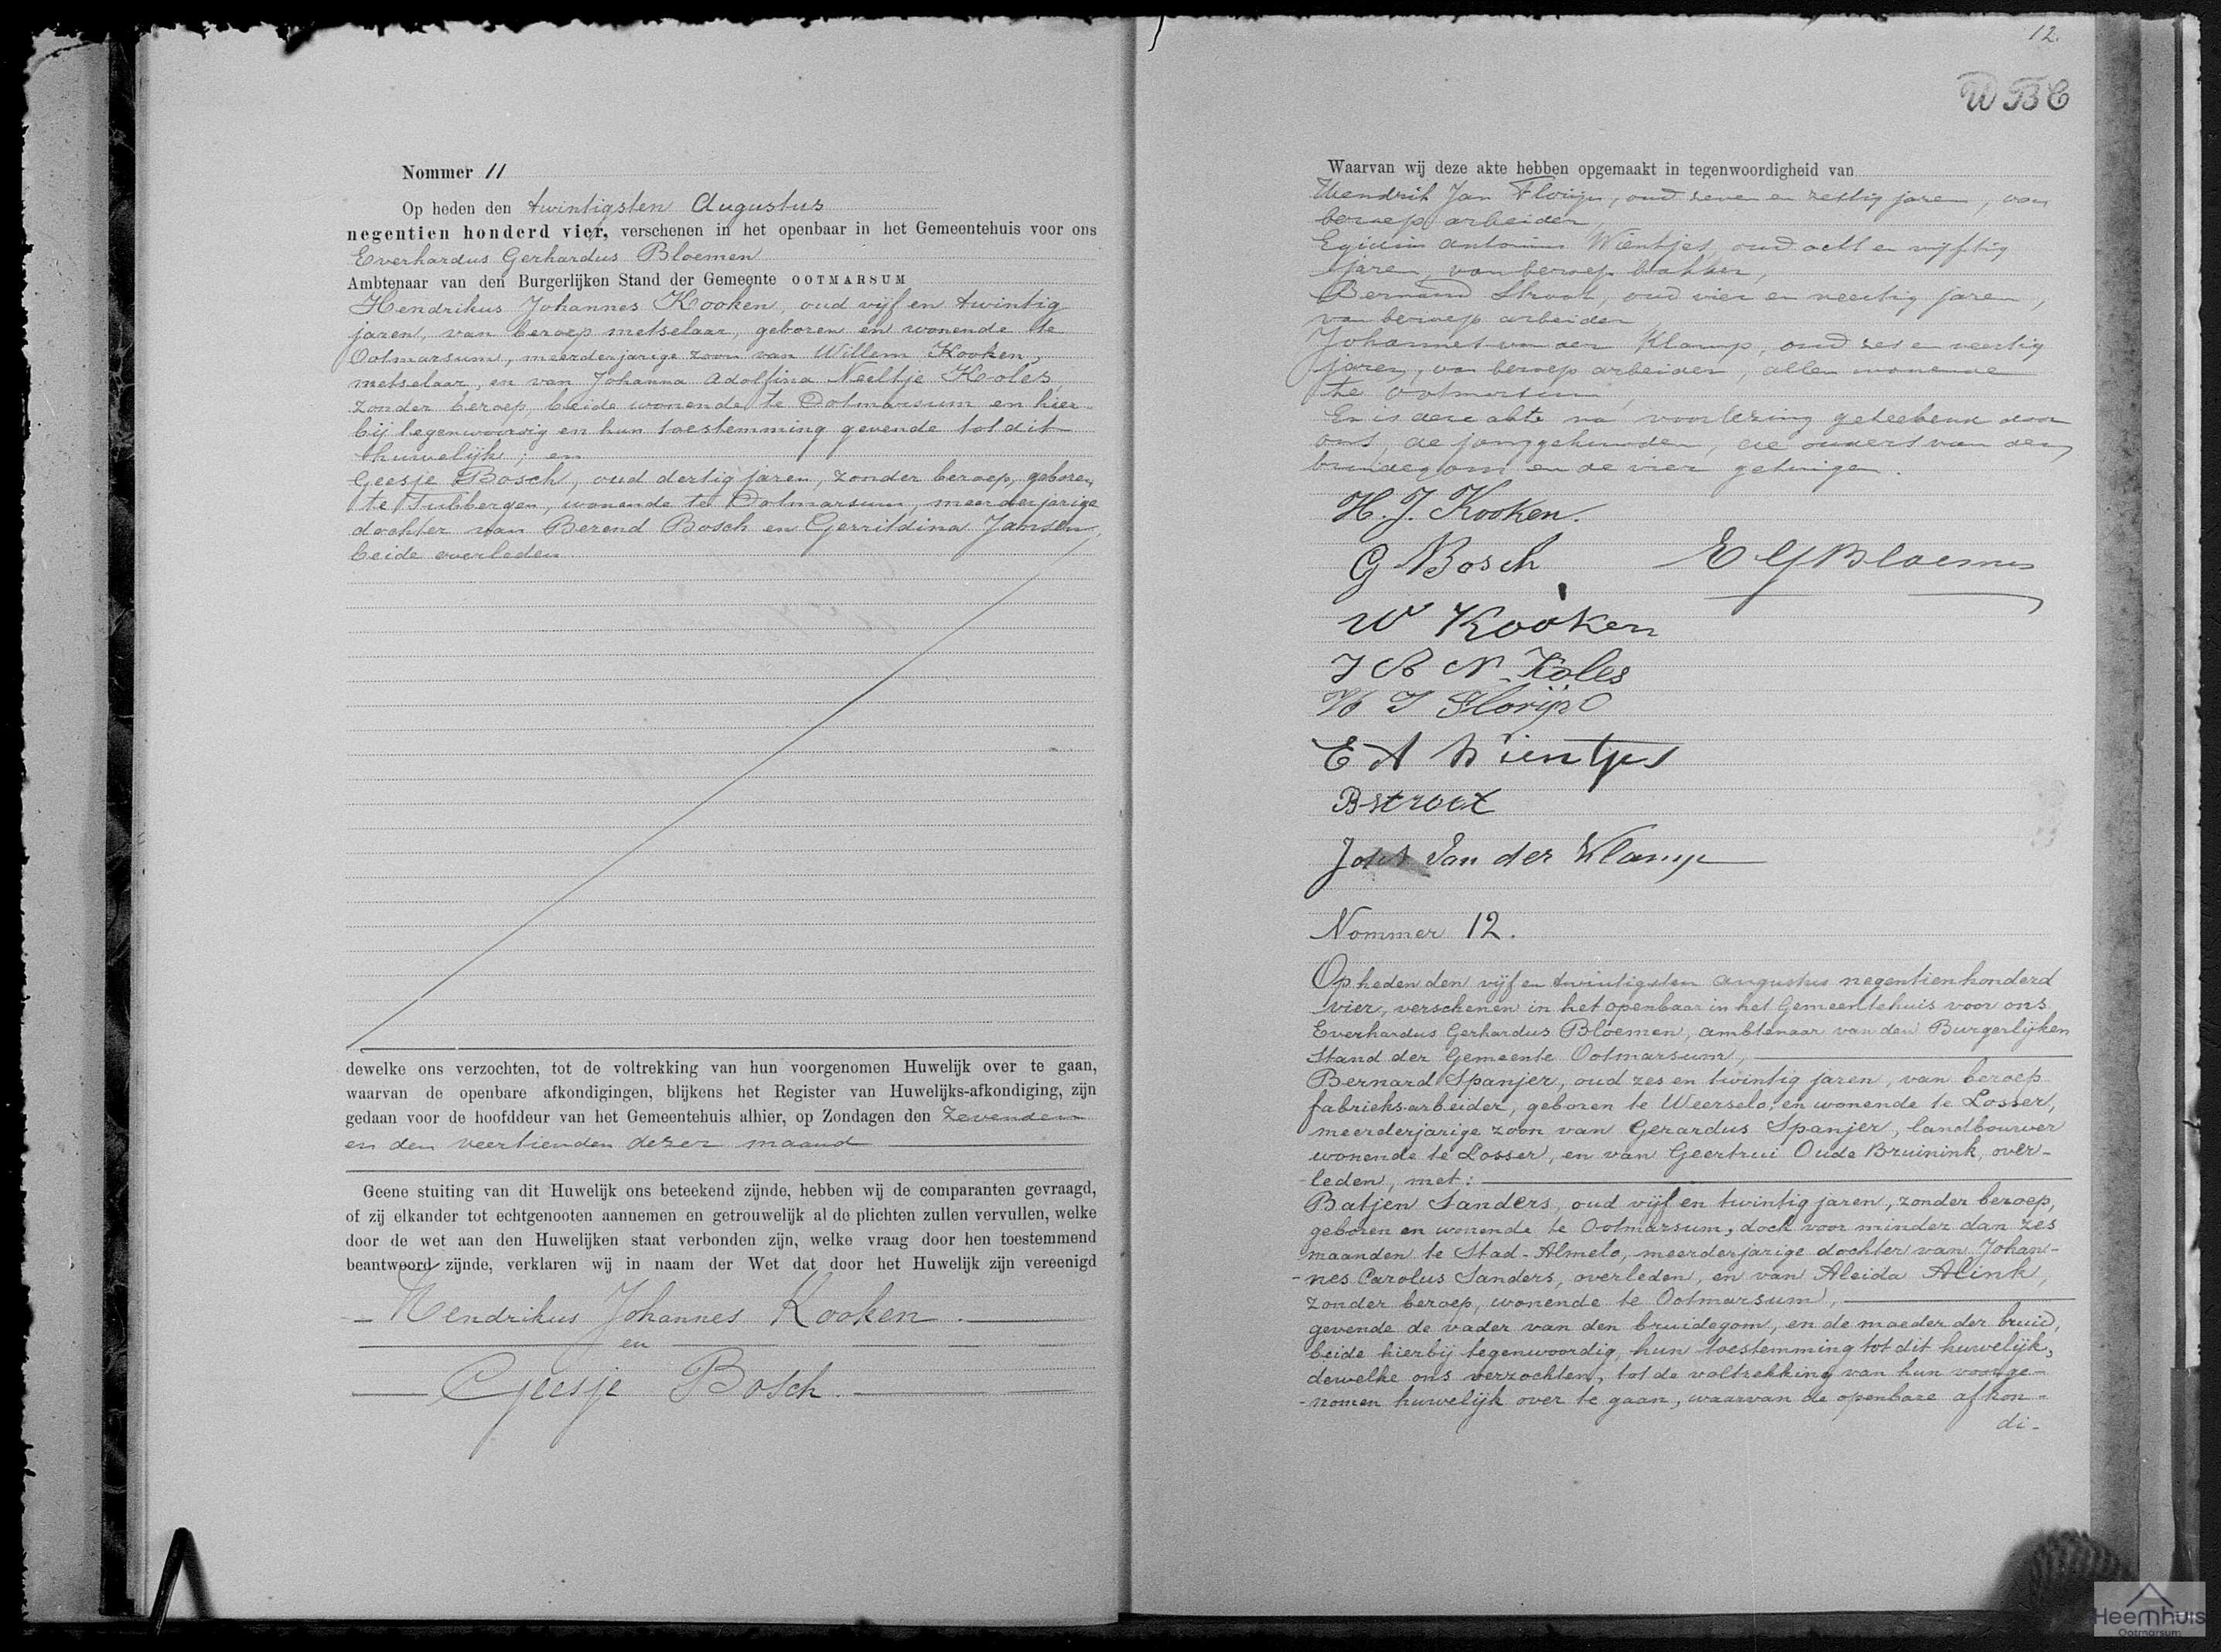 Nommer 11
Op heden den twintigsten Augustus
negentien honderd vier, verschenen in het openbaar in het Gemeentehuis voor ons
Everhardus Gerhardus Bloemen
Ambtenaar van den Burgerlijken Stand der Gemeente OOTMARSUM
Hendrikus Johannes Kooken, oud vijf en twintig
jaren, van beroep metselaar, geboren en wonende te
Ootmarsum, meerderjarige zoon van Willem Kooken,
metselaar, en van Johanna Adolfina Neeltje Koles,
zonder beroep, beide wonende te Ootmarsum en hier-
bij tegenwoordig en hun toestemming gevende tot dit
huwelijk; en
Geesje Bosch, oud dertig jaren, zonder beroep, geboren
te Tubbergen, wonende te Ootmarsum, meerderjarige
dochter van Berend Bosch en Gerritdina Jansen,
beide overleden
dewelke ons verzochten, tot de voltrekking van hun voorgenomen Huwelijk over te gaan,
waarvan de openbare afkondigingen, blijkens het Register van Huwelijks-afkondiging, zijn
gedaan voor de hoofddeur van het Gemeentehuis alhier, op Zondagen den zevenden
en den veertienden dezer maand
Geene stuiting van dit Huwelijk ons beteekend zijnde, hebben wij de comparanten gevraagd,
of zij elkander tot echtgenooten aannemen en getrouwelijk al de plichten zullen vervullen, welke
door de wet aan den Huwelijken staat verbonden zijn, welke vraag door hen toestemmend
beantwoord zijnde, verklaren wij in naam der Wet dat door het Huwelijk zijn vereenigd
Hendrikus Johannes Kooken.
en
Geesje Bosch.
12.
WBC
Waarvan wij deze akte hebben opgemaakt in tegenwoordigheid van
Hendrik Jan Florijn, oud zeven en zestig jaren, van
beroep arbeider,
Egidius Antonius Wientjes, oud acht en vijftig
jaren, van beroep bakker,
Bernard Stroot, oud vier en veertig jaren,
van beroep arbeider
Johannes van der Klamp, oud zes en veertig
jaren, van beroep arbeider, allen wonende
te Ootmarsum,
En is deze akte na voorlezing geteekend door
ons, de jonggehuwden, de ouders van den
bruidegom en de vier getuigen.
H. J. Kooken.
G Bosch
E G Bloemen
W Kooken
J A N Koles
H J Florijn
E A Wientjes
B Stroot
Joh van der Klamp
Nommer 12.
Op heden den vijf en twintigsten augustus negentienhonderd
vier, verschenen in het openbaar in het Gemeentehuis voor ons
Everhardus Gerhardus Bloemen, ambtenaar van den Burgerlijken
Stand der Gemeente Ootmarsum,
Bernard Spanjer, oud zes en twintig jaren, van beroep
fabrieksarbeider, geboren te Weerselo, en wonende te Losser,
meerderjarige zoon van Gerardus Spanjer, landbouwer
wonende te Losser, en van Geertrui Oude Bruinink, over-
leden, met:
Batjen Sanders, oud vijf en twintig jaren, zonder beroep,
geboren en wonende te Ootmarsum, doch voor minder dan zes
maanden te Stad-Almelo, meerderjarige dochter van Johan-
-nes Carolus Sanders, overleden, en van Aleida Alink,
zonder beroep, wonende te Ootmarsum,
gevende de vader van den bruidegom, en de moeder der bruid,
beide hierbij tegenwoordig, hun toestemming tot dit huwelijk,
dewelke ons verzochten, tot de voltrekking van hun voorge-
-nomen huwelijk over te gaan, waarvan de openbare afkon-
di-
Heemhuis
Ootmarsum